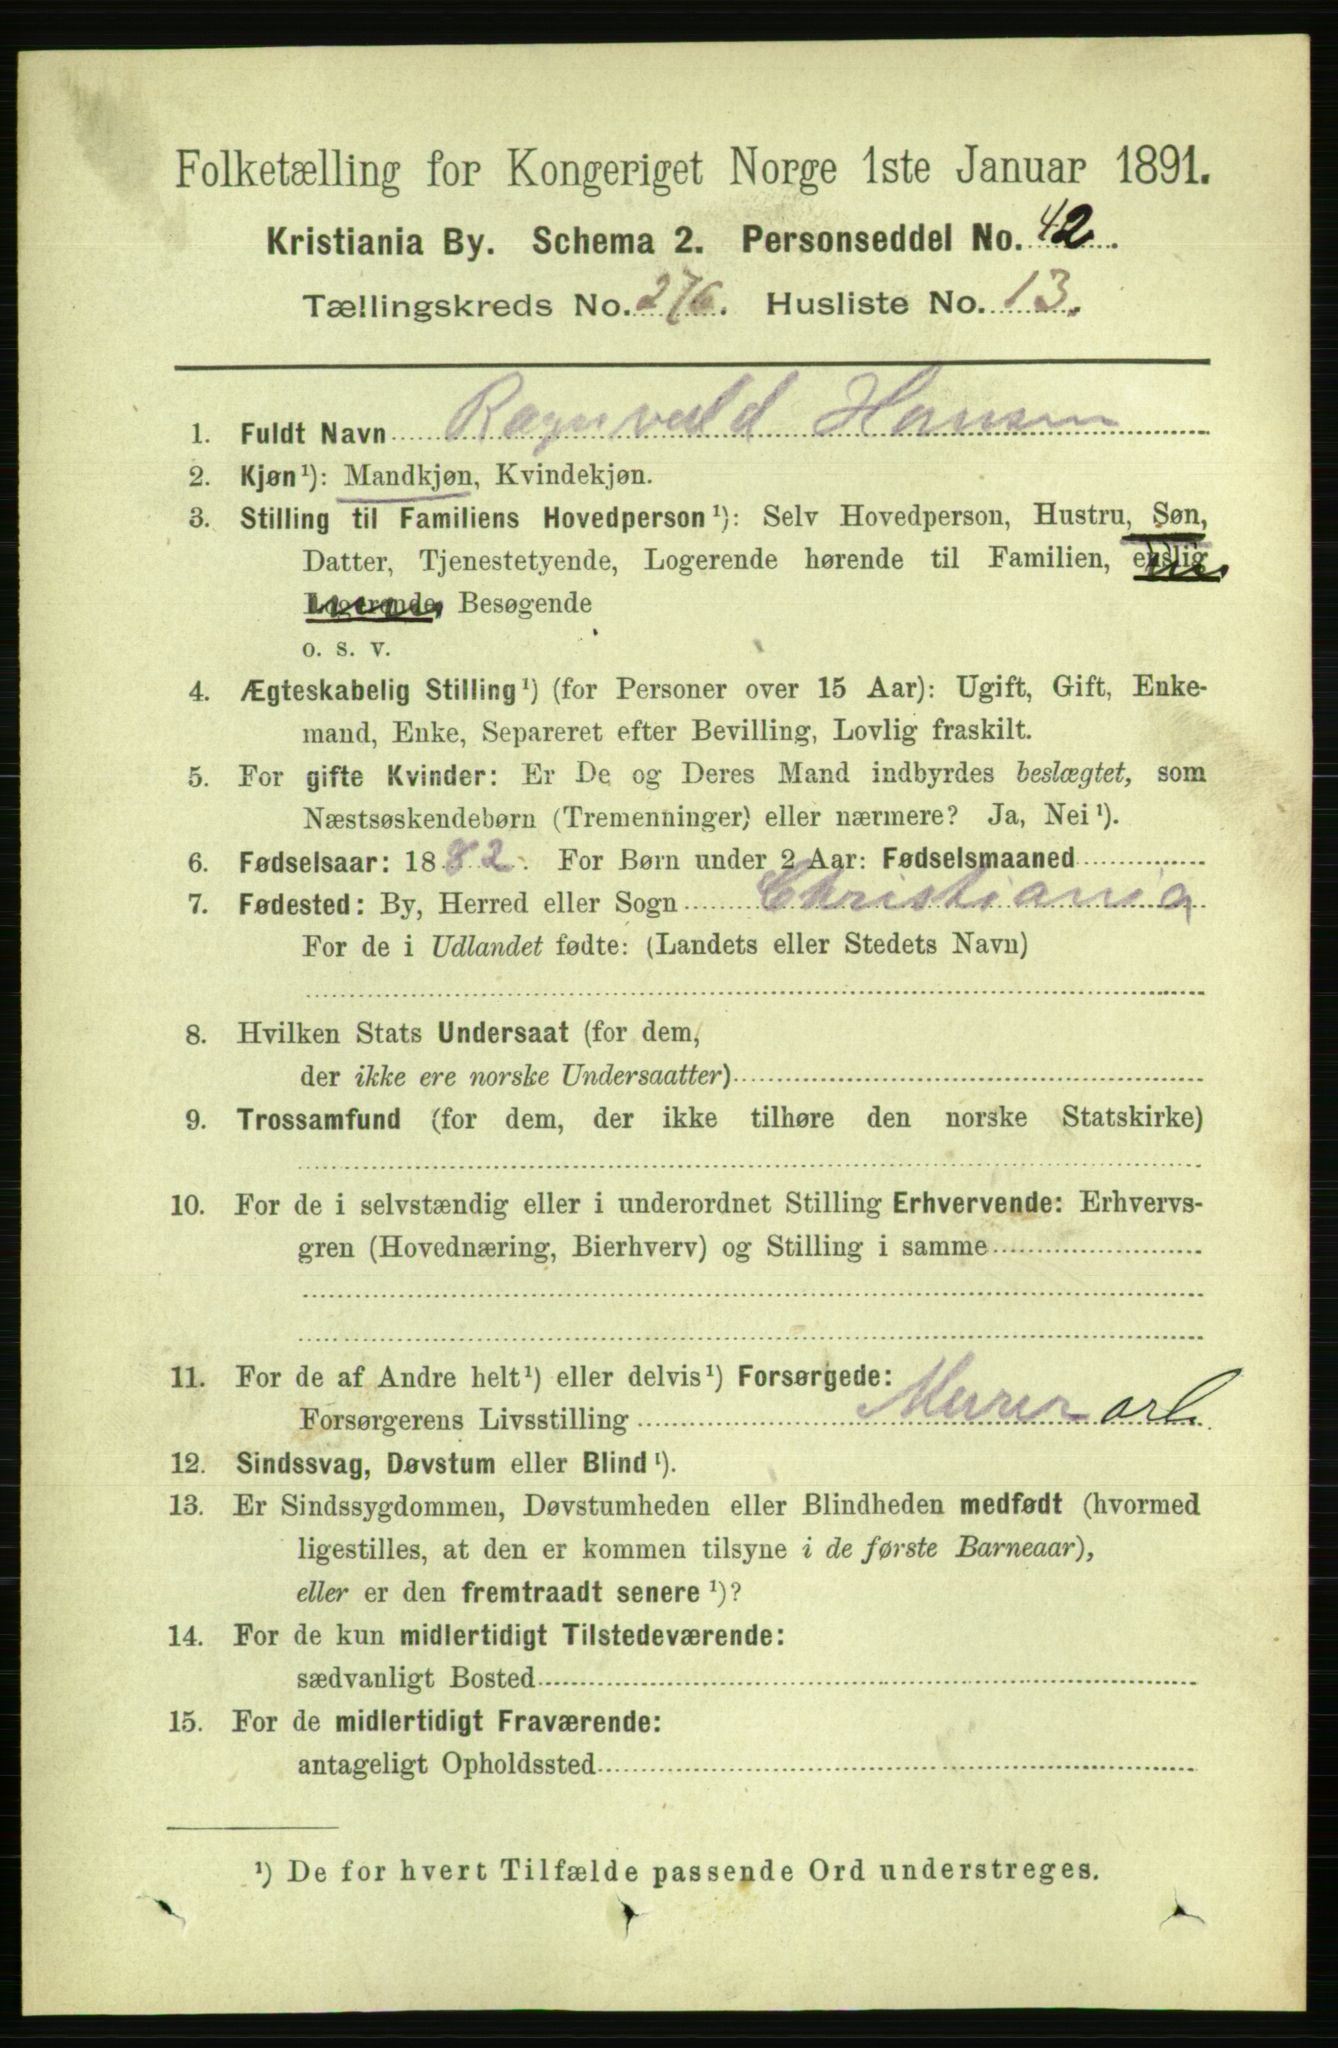 Folketælling for Kongeriget Norge 1ste Januar 1891.
Kristiania By. Schema 2. Personseddel No. 42.
Tællingskreds No. 276. Husliste No. 13.
1. Fuldt Navn Ragnvald Hansen
2. Kjøn¹): Mandkjøn, Kvindekjøn.
3. Stilling til Familiens Hovedperson¹): Selv Hovedperson, Hustru, Søn,
Datter, Tjenestetyende, Logerende hørende til Familien, enslig
Logerende, Besøgende
o. s. v.
4. Ægteskabelig Stilling¹) (for Personer over 15 Aar): Ugift, Gift, Enke-
mand, Enke, Separeret efter Bevilling, Lovlig fraskilt.
5. For gifte Kvinder: Er De og Deres Mand indbyrdes beslægtet, som
Næstsøskendebørn (Tremenninger) eller nærmere? Ja, Nei¹).
6. Fødselsaar: 1882. For Børn under 2 Aar: Fødselsmaaned
7. Fødested: By, Herred eller Sogn Christiania
For de i Udlandet fødte: (Landets eller Stedets Navn)
8. Hvilken Stats Undersaat (for dem,
der ikke ere norske Undersaatter)
9. Trossamfund (for dem, der ikke tilhøre den norske Statskirke)
10. For de i selvstændig eller i underordnet Stilling Erhvervende: Erhvervs-
gren (Hovednæring, Bierhverv) og Stilling i samme
11. For de af Andre helt¹) eller delvis¹) Forsørgede:
Forsørgerens Livsstilling Murer arb.
12. Sindssvag, Døvstum eller Blind¹).
13. Er Sindssygdommen, Døvstumheden eller Blindheden medfødt (hvormed
ligestilles, at den er kommen tilsyne i de første Barneaar),
eller er den fremtraadt senere¹)?
14. For de kun midlertidigt Tilstedeværende:
sædvanligt Bosted
15. For de midlertidigt Fraværende:
antageligt Opholdssted
¹) De for hvert Tilfælde passende Ord understreges.